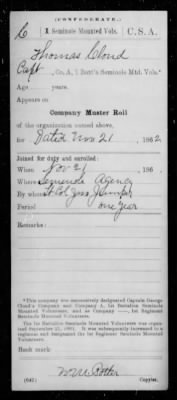 (CONFEDERATE.)
C | 1 Seminole Mounted Vols. | C. S. A.
Thomas Cloud
Capt., Co. A, 1 Batt'n Seminole Mtd. Vols.*
Age years.
Appears on
Company Muster Roll
of the organization named above,
for Dated Nov 21, 1862
Joined for duty and enrolled:
When Nov 21, 186
Where Seminole Agency
By whom
Period one year
Remarks:
*This company was successively designated Captain George
Cloud's Company and Company A, 1st Battalion Seminole
Mounted Volunteers, and as Company ——, 1st Regiment
Seminole Mounted Volunteers.
The 1st Battalion Seminole Mounted Volunteers was organized
September 21, 1861. It was subsequently increased to a
regiment and designated the 1st Regiment Seminole Mounted
Volunteers.
Book mark:
(642) Copyist.